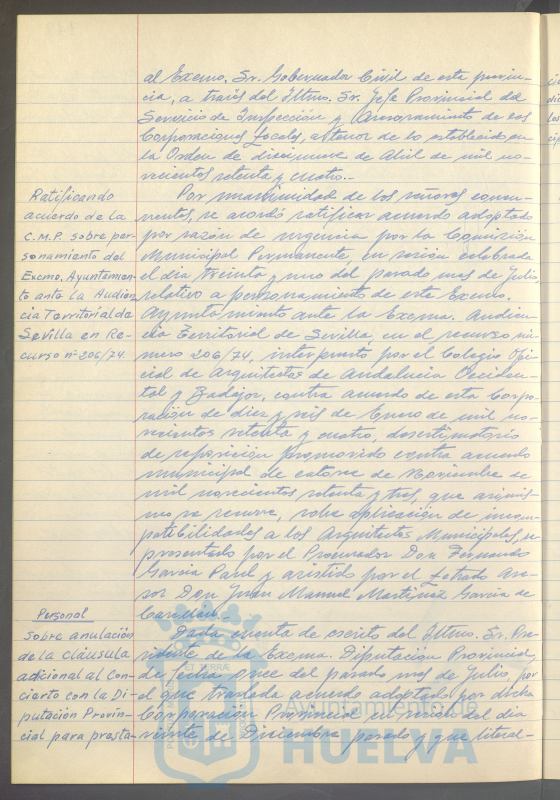 al Excmo. Sr. Gobernador Civil de esta provin-
cia, a través del Iltmo. Sr. Jefe Provincial del
Servicio de Inspección y Asesoramiento de las
Corporaciones Locales, a tenor de lo establecido en
la Orden de diecinueve de Abril de mil no-
vecientos setenta y cuatro.-
Ratificando
acuerdo de la
C.M.P. sobre per-
sonamiento del
Excmo. Ayuntamien-
to ante la Audien
cia Territorial de
Sevilla en Re-
curso nº 206/74.
Por unanimidad de los señores concu-
rrentes, se acordó ratificar acuerdo adoptado
por razón de urgencia por la Comisión
Municipal Permanente, en sesión celebrada
el día treinta y uno del pasado mes de Julio,
relativo a personamiento de este Excmo.
Ayuntamiento ante la Excma. Audien
cia Territorial de Sevilla, en el recurso nú-
mero 206/74, interpuesto por el Colegio Ofi-
cial de Arquitectos de Andalucía Occiden-
tal y Badajoz, contra acuerdo de esta Corpo-
ración de diez y seis de Enero de mil no-
vecientos setenta y cuatro, desestimatorio
de reposición promovido contra acuerdo
municipal de catorce de Noviembre de
mil novecientos setenta y tres, que asimis-
mo se recurre, sobre aplicación de incom-
patibilidades a los Arquitectos Municipales, re
presentado por el Procurador Don Fernando
García Paul y asistido por el Letrado Ase-
sor Don Juan Manuel Martínez García de
Personal
Sobre anulación
de la cláusula
adicional al Con-
cierto con la Di-
putación Provin-
cial para presta-
Dada cuenta de escrito del Iltmo. Sr. Pre-
sidente de la Excma. Diputación Provincial,
de fecha once del pasado mes de Julio, por
el que traslada acuerdo adoptado por dicha
Corporación Provincial en sesión del día
veinte de Diciembre pasado y que literal-
Ayuntamiento de
HUELVA